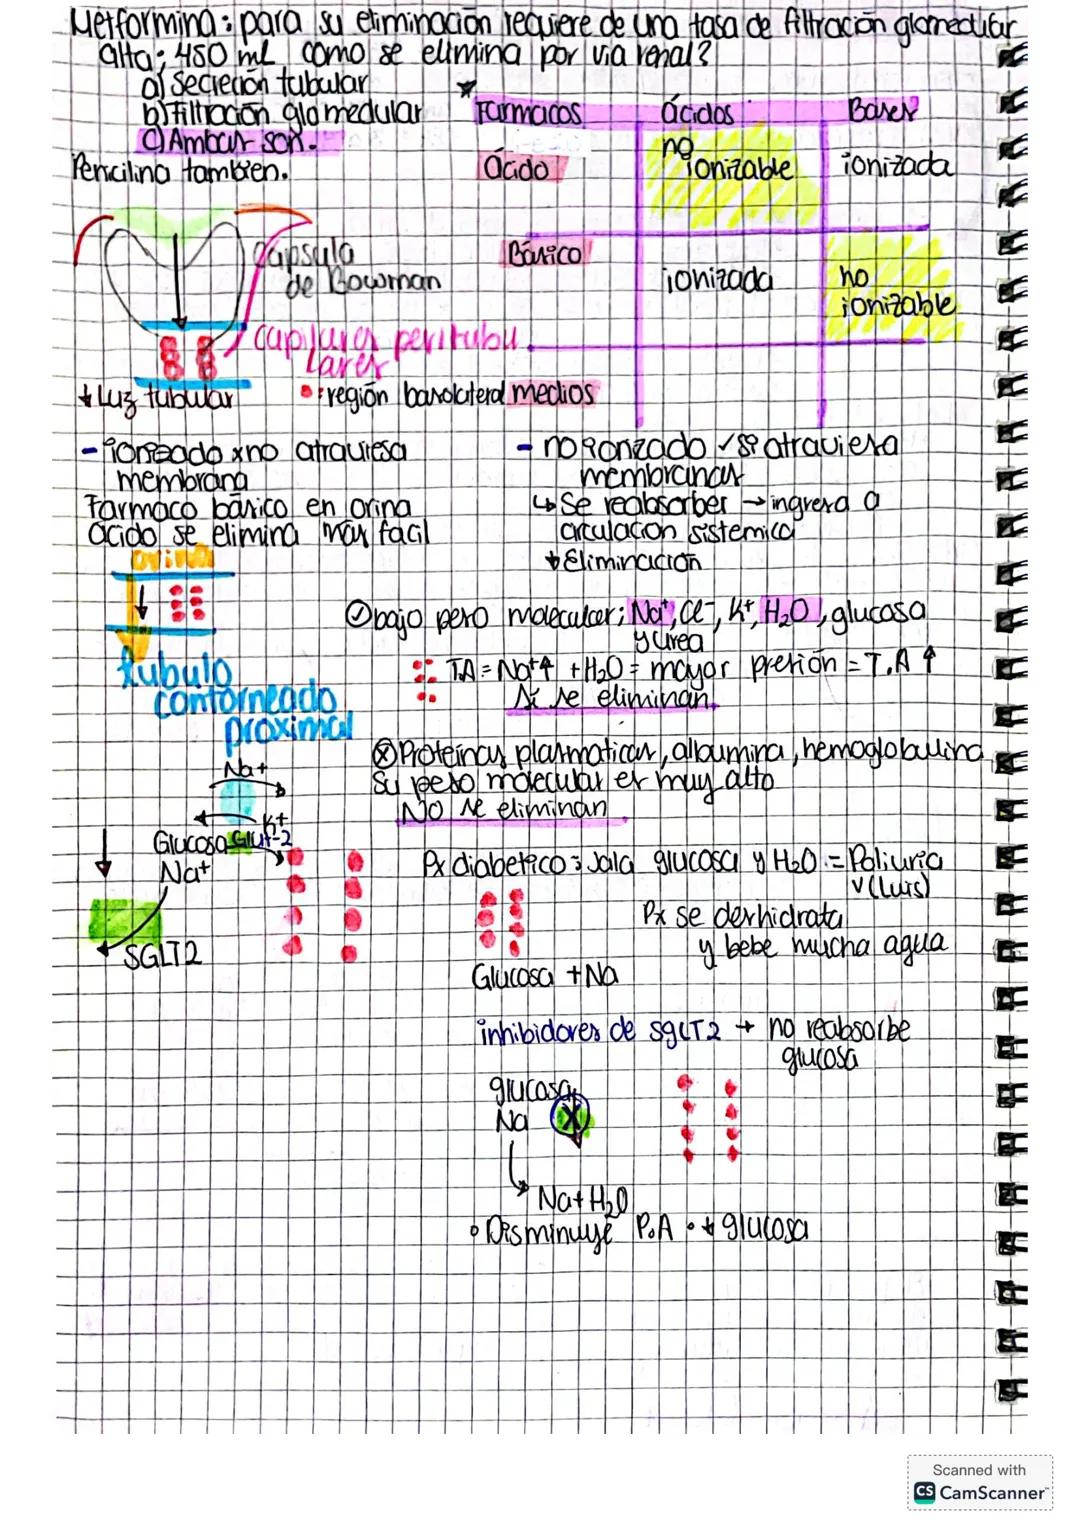 Metformina: para su eliminación requiere de una tasa de filtración glomedular
alta: 450 mL como se elimina por via renal?
a) Secreción tubular
b) Filtración glomedular
c) Ambas son.
Penicilina tambien.
Farmacos ácidos Bases
Ácido no ionizable ionizada
Básico ionizada no ionizable
Capsula
de Bowman
Capilares peritubu
lares
↓ Luz tubular
: región basolateral medios
- ionizado x no atraviesa
membrana
Farmaco básico en orina
ácido se elimina más facil
- no ionizado ✓ si atraviesa
membranas
↳ Se reabsorber → ingresa a
circulacion sistemica
↓ Eliminación
orina
tubulo
contorneado
proximal
✓ bajo peso molecular; Na+, Cl-, K+, H₂O, glucosa
y urea
TA = Na+↑ + H₂O = mayor presión = T.A ↑
Si se eliminan.
x Proteínas plasmaticas, albumina, hemoglobulina
Su peso molecular es muy alto
No se eliminan
Na+
K+
Glucosa Glut-2
Na+
SGLT2
Px diabetico: Jala glucosa y H₂O = Poliuria
v (Luis)
Px se deshidrata
y bebe mucha agua
Glucosa + Na
inhibidores de SGLT2 → no reabsorbe
glucosa
glucosa
Na X
Na+ H₂O
• Disminuye P.A • ↓ glucosa
Scanned with
CS CamScanner